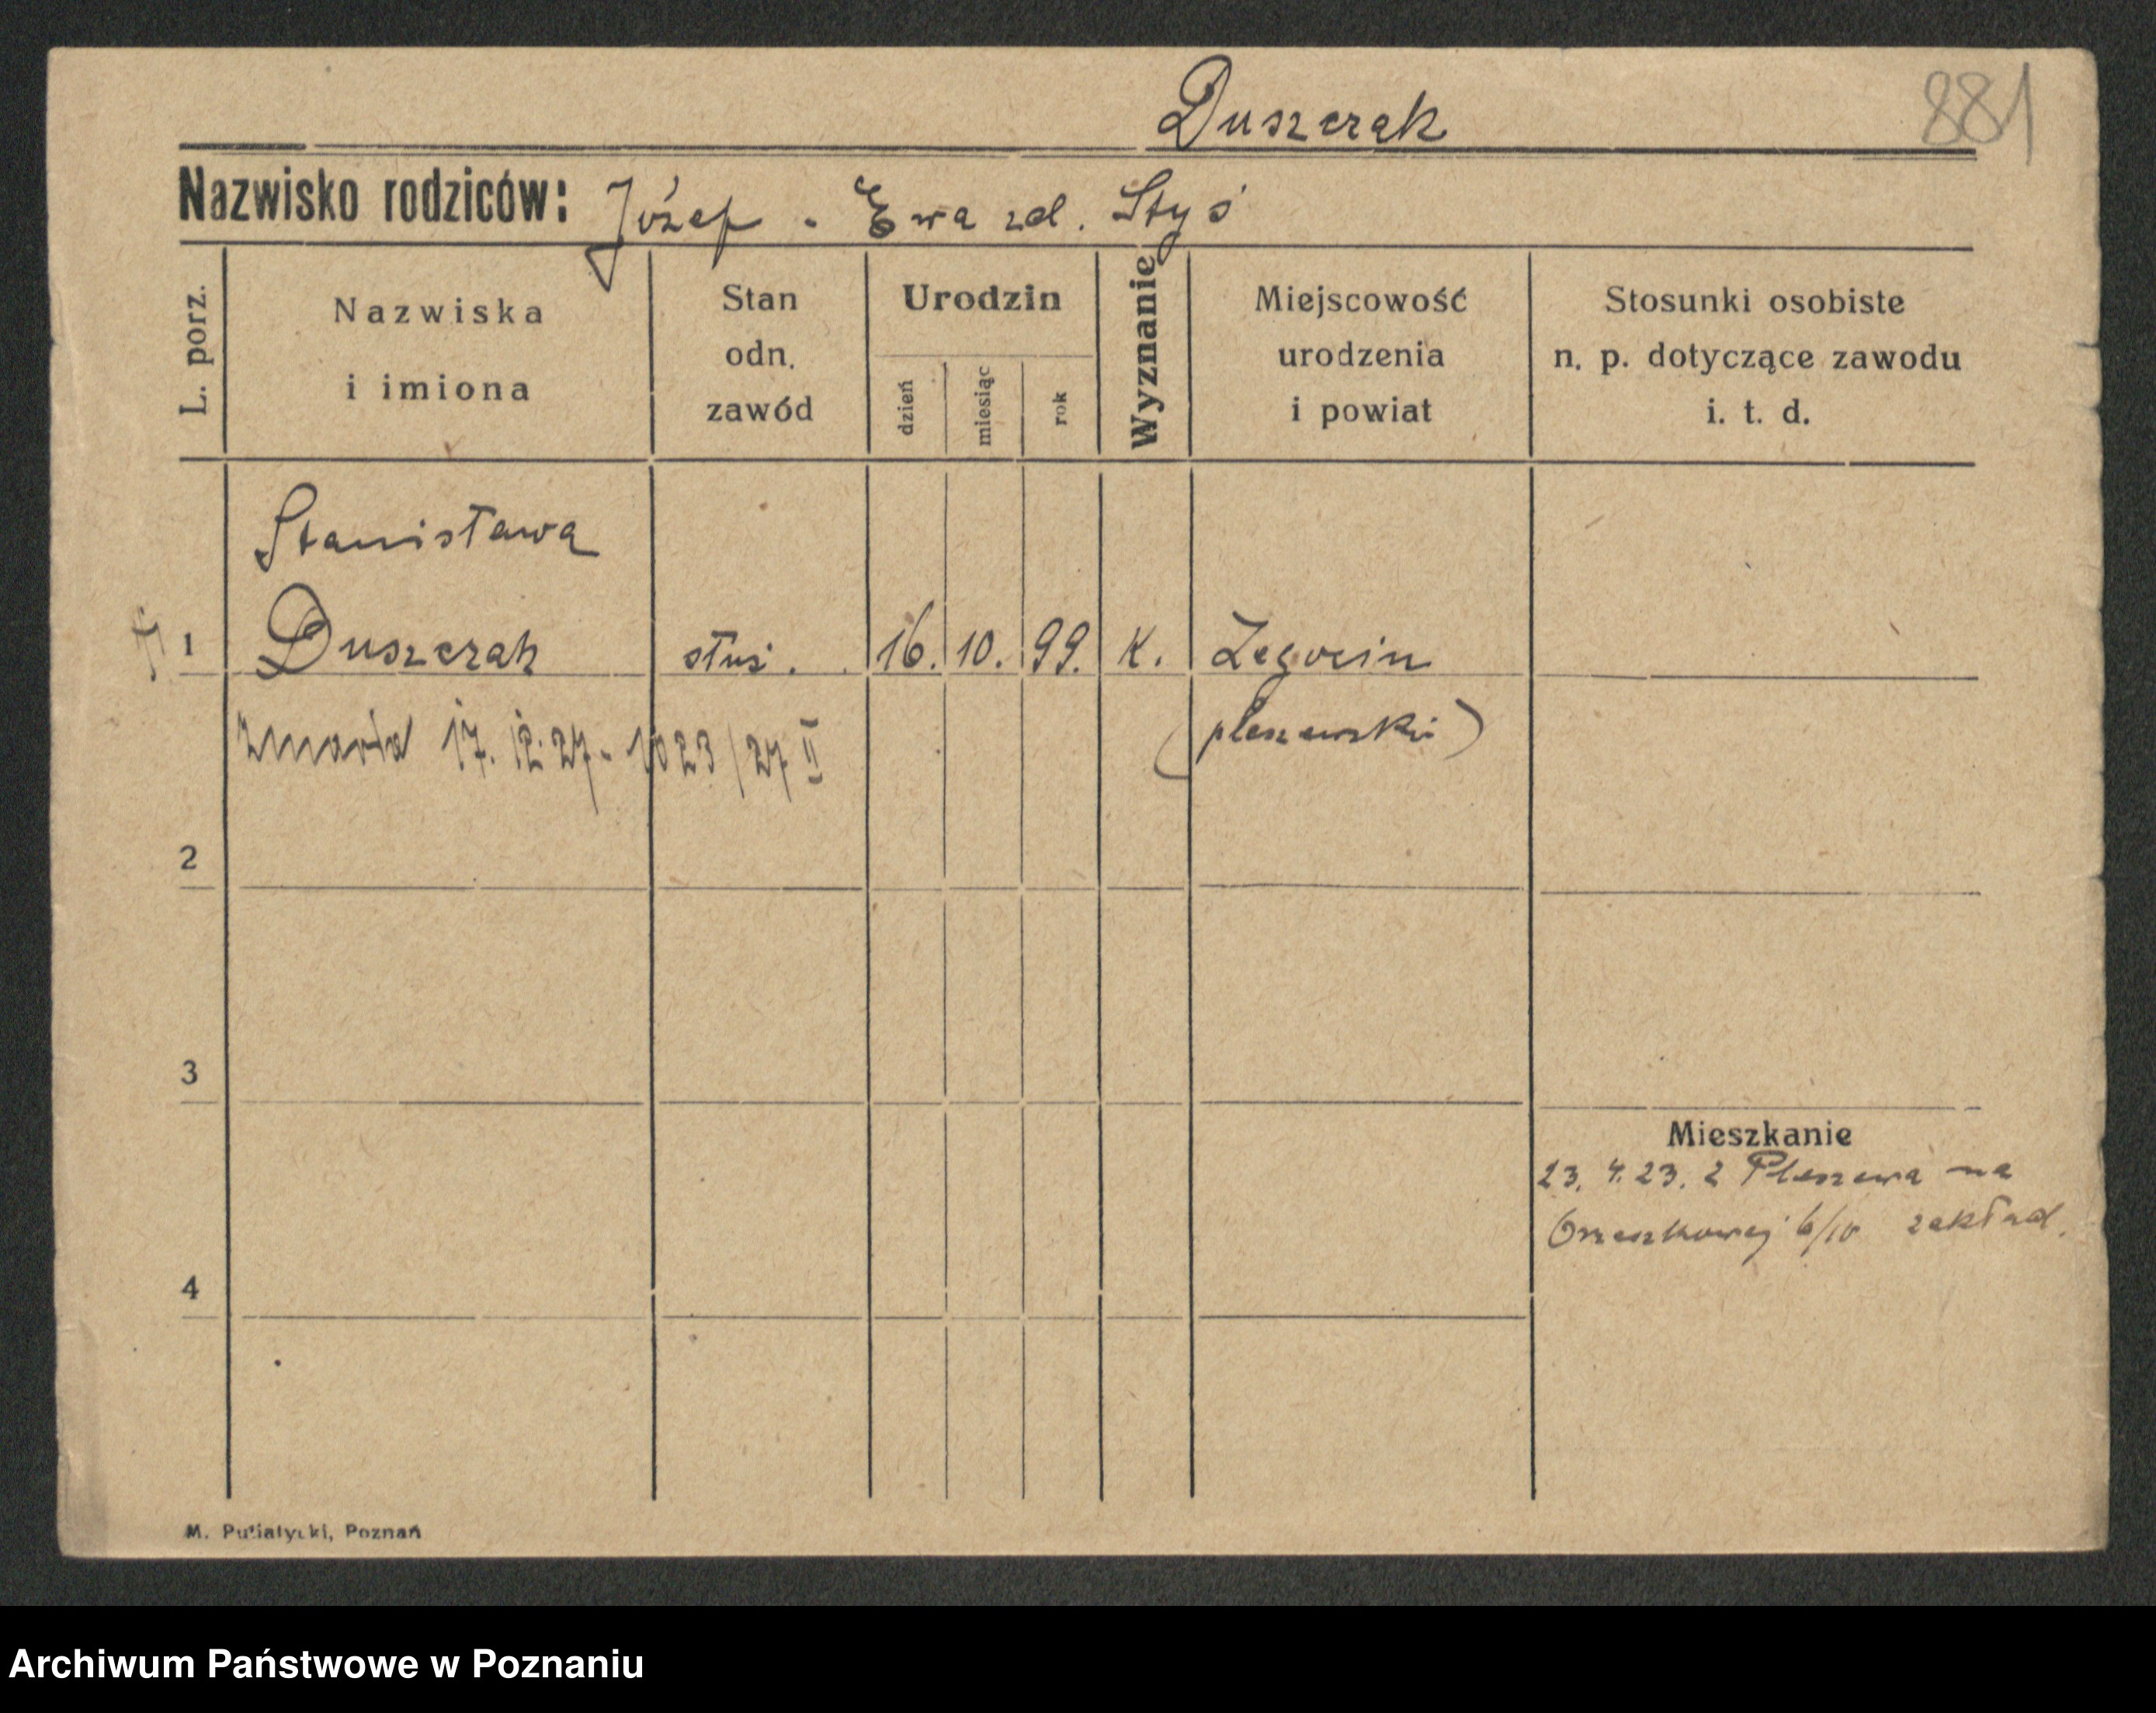 Duszczak
881
Nazwisko rodziców: Józef - Ewa zd. Styś
L. porz.
Nazwiska i imiona
Stan odn. zawód
Urodzin
dzień
miesiąc
rok
Wyznanie
Miejscowość urodzenia i powiat
Stosunki osobiste n. p. dotyczące zawodu i. t. d.
Stanisława
1 Duszczak służ. 16. 10. 99. K. Żegocin
(pleszewski)
zmarła 17. 12. 27 - 1023/27 II
2
3
Mieszkanie
23. 4. 23. z Pleszewa na
Orzeszkowej 6/10 zakład.
4
M. Putiatycki, Poznań
Archiwum Państwowe w Poznaniu